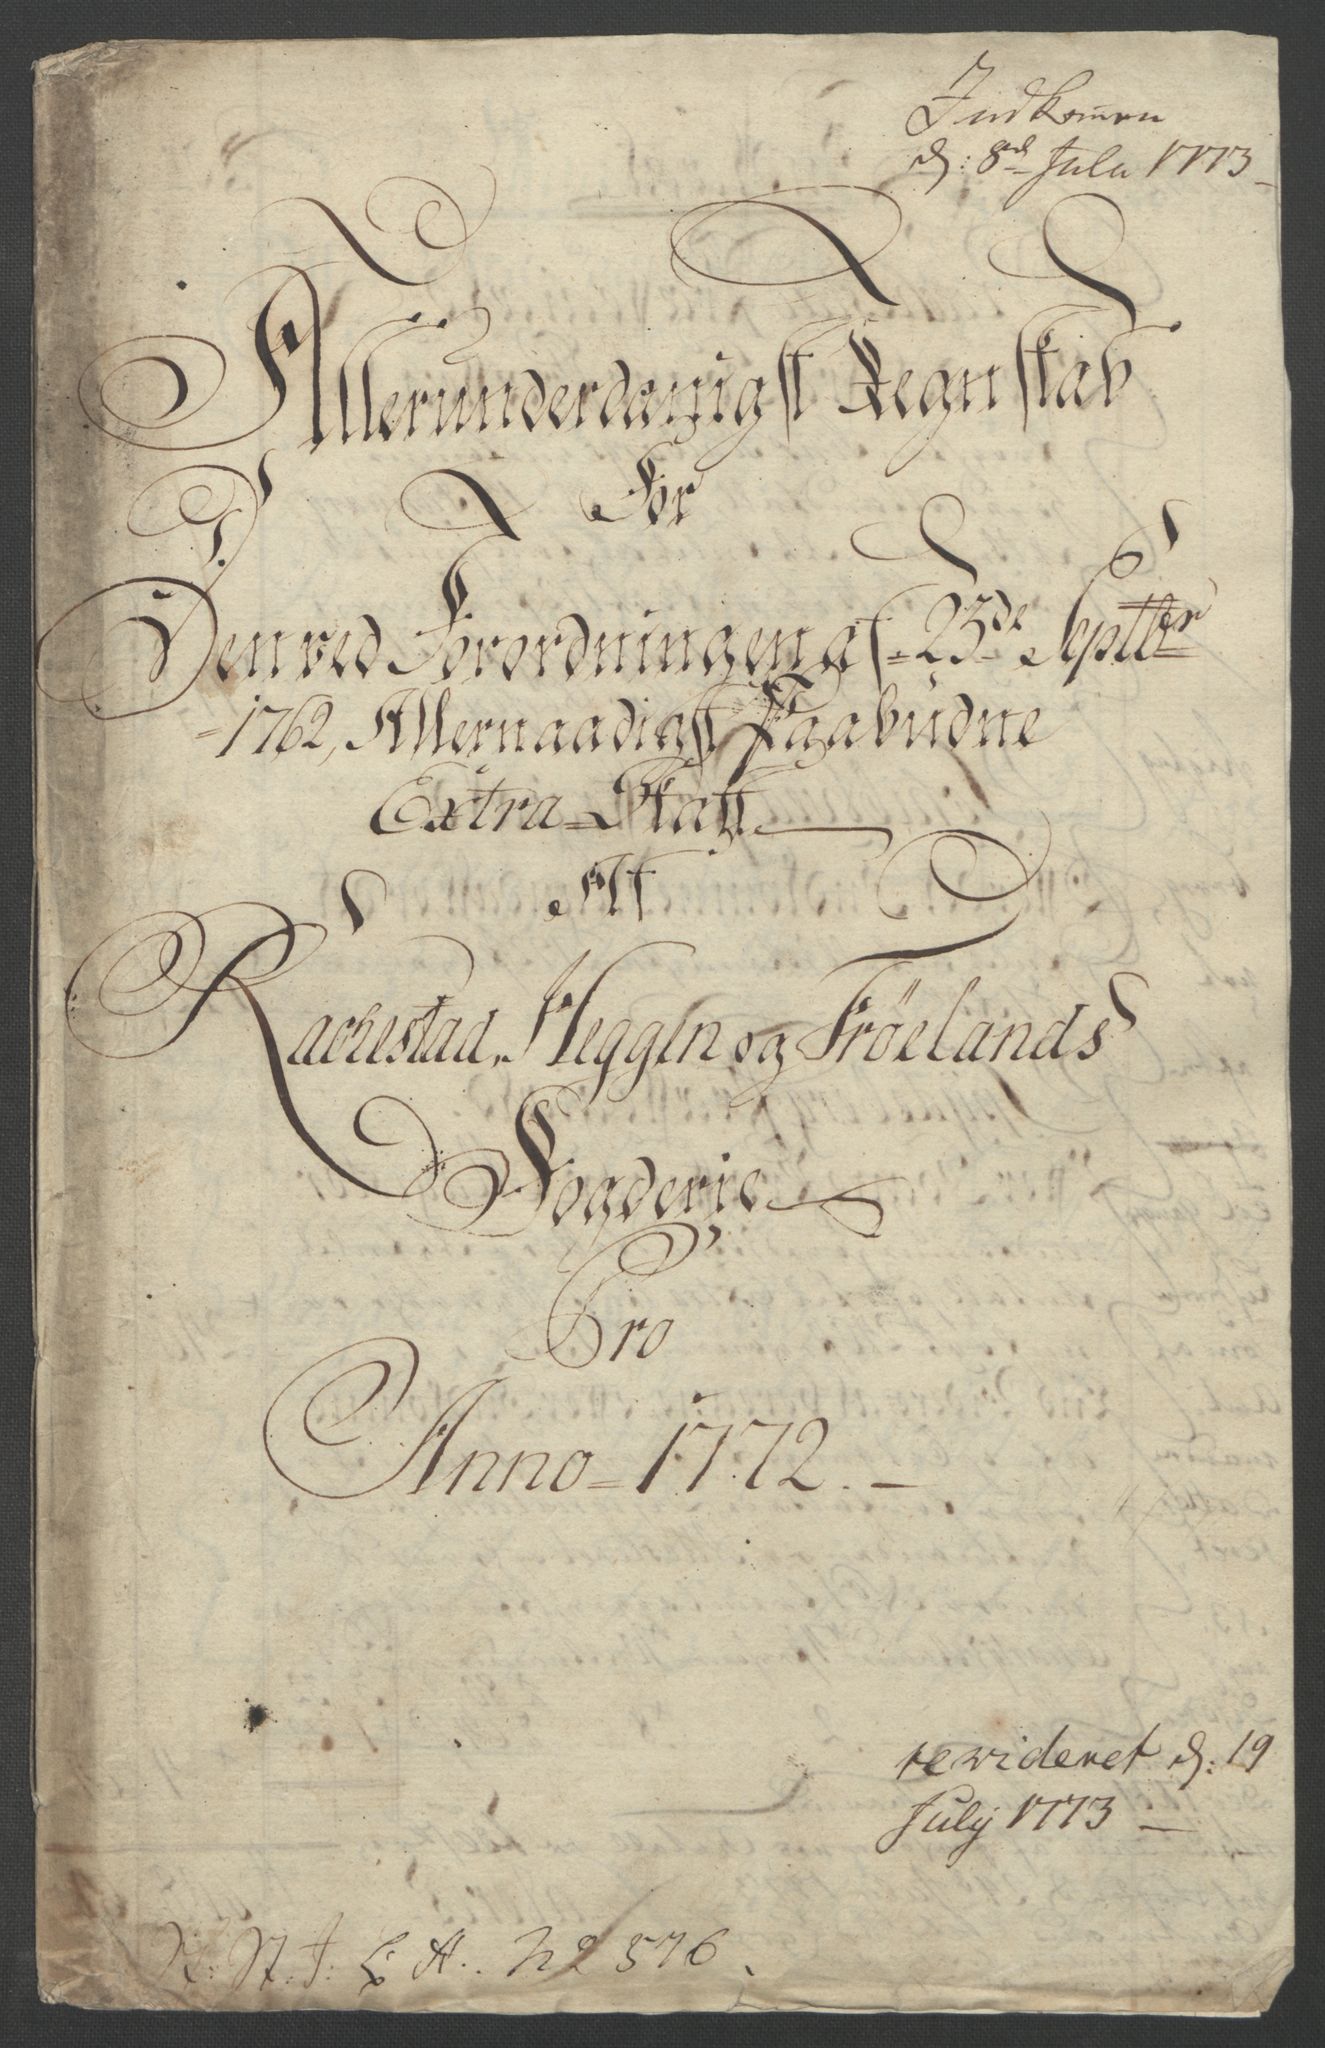 Indkommen
d: 8de Julii 1773
Allerunderdanigst Regnskab
For
Den ved Forordningen af 23de Septbr
1762, Allernaadigst Paabudne
Extra-Skatt
Af
Rachestad, Heggen og Fröelands
Fogderie
Pro
Anno 1772.
revideret d: 19
July 1773
No 2576.